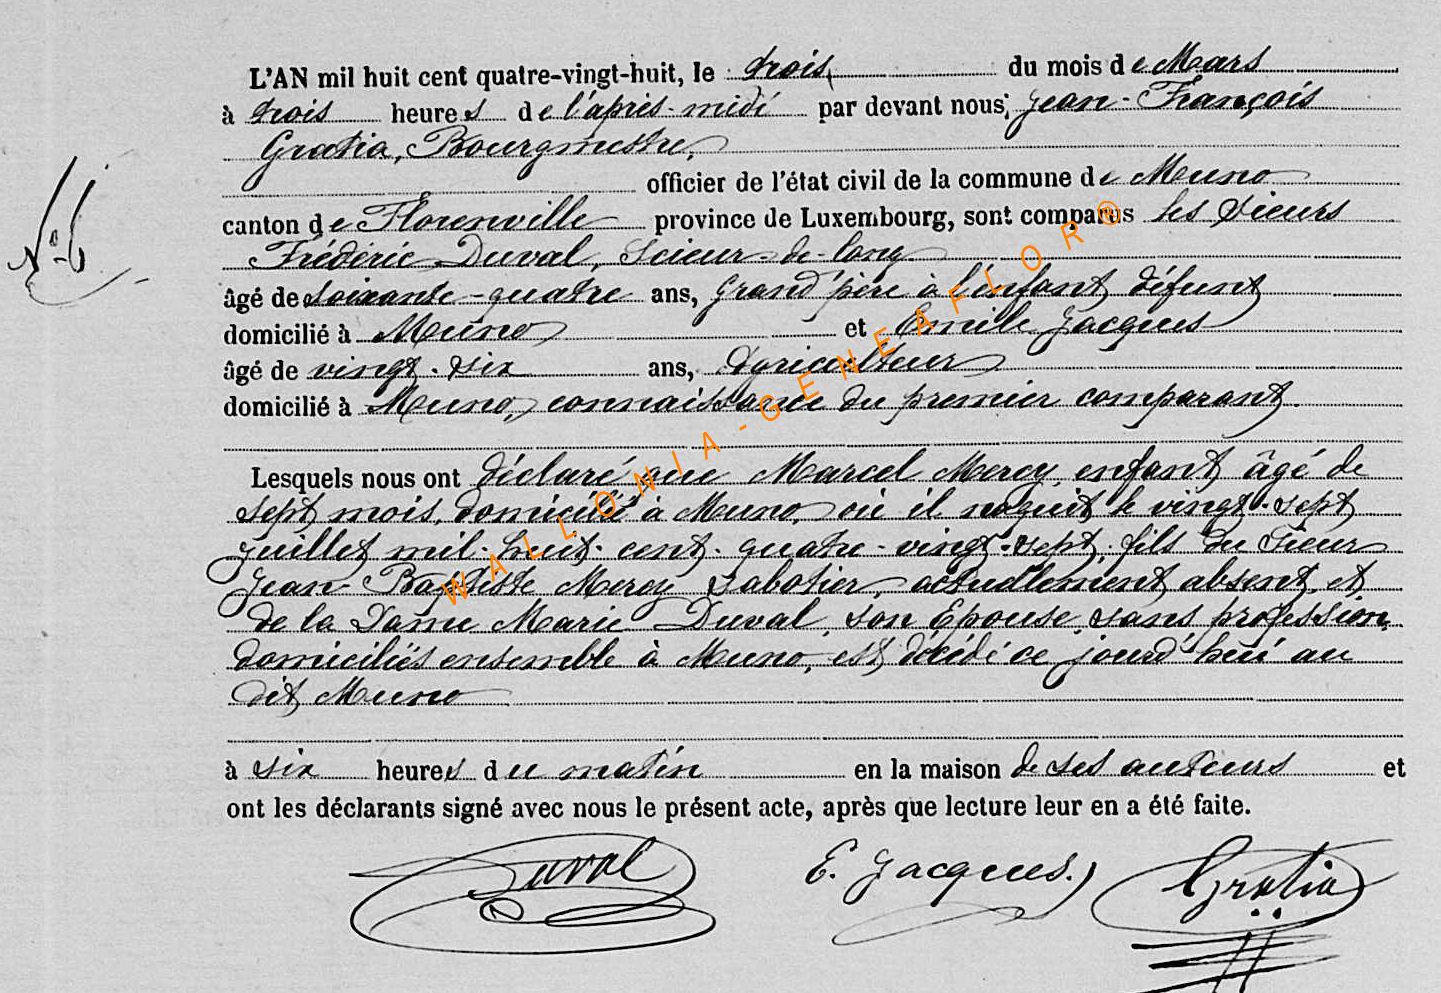 L'AN mil huit cent quatre-vingt-huit, le trois, du mois de Mars
à trois heures de l'après-midi par devant nous, Jean-François
Gratia, Bourgmestre,
officier de l'état civil de la commune de Muno
canton de Florenville province de Luxembourg, sont comparus les sieurs
Frédéric Duval, Scieur-de-long
âgé de soixante-quatre ans, Grand père à l'enfant défunt
domicilié à Muno et Emile Jacques
âgé de vingt-six ans, Agriculteur
domicilié à Muno, connaissance du premier comparant.
Lesquels nous ont déclaré que Marcel Mercy, enfant âgé de
sept mois, domicilié à Muno, où il naquit le vingt-sept
juillet mil-huit-cent-quatre-vingt-sept, fils du sieur
Jean Baptiste Mercy sabotier, actuellement absent, et
de la Dame Marie Duval, son Epouse, sans profession,
domiciliés ensemble à Muno, est décédé ce jourd'hui au
dit Muno
à six heures du matin en la maison de ses auteurs et
ont les déclarants signé avec nous le présent acte, après que lecture leur en a été faite.
Duval E. Jacques. Gratia
WALLONIA-GENEAFLOR®